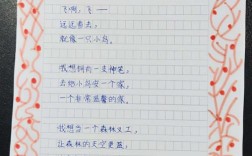 飞啊，飞——
远远看去，
就像一只小鸟。
我想拥有一支神笔，
去给小鸟安一个家，
一个非常温馨的家。
我想当一个森林义工，
让森林的天空更蓝，